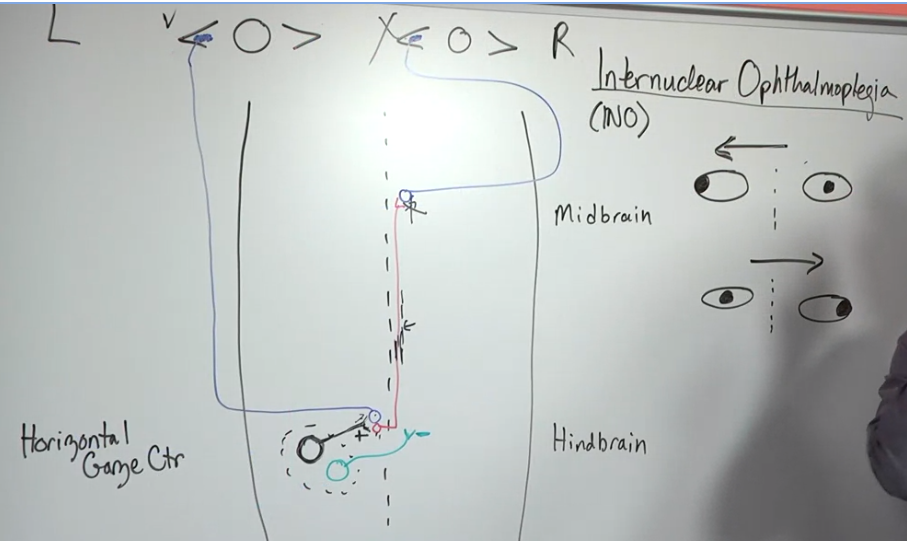 L R
Internuclear Ophthalmoplegia
(INO)
Midbrain
Horizontal
Gaze Ctr
Hindbrain